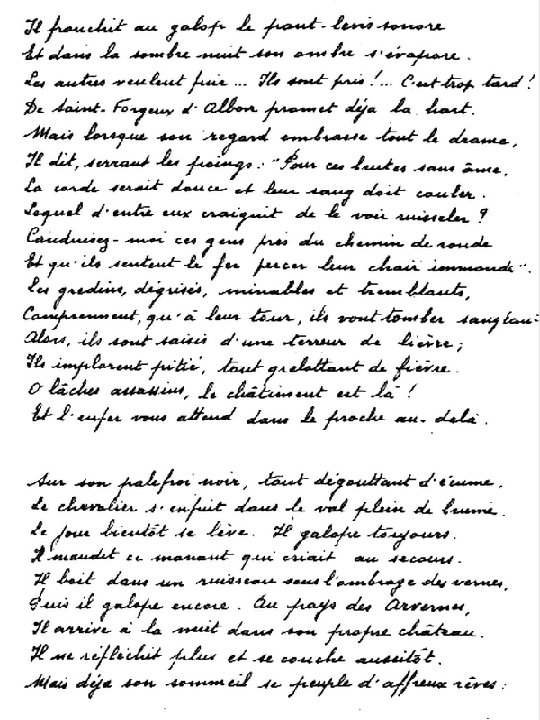 Il franchit au galop le pont-levis sonore
Et dans la sombre nuit son ombre s'évapore.
Les autres veulent fuir ... Ils sont pris !... C'est trop tard !
De Saint-Forgeux d'Albon promet déja la hart.
Mais lorsque son regard embrasse tout le drame,
Il dit, serrant les poings : "Pour ces brutes sans âme,
La corde serait douce et leur sang doit couler.
Lequel d'entre eux craignit de le voir ruisseler ?
Conduisez-moi ces gens près du chemin de ronde
Et qu'ils sentent le fer percer leur chair immonde".
Les gredins, dégrisés, minables et tremblants,
Comprennent, qu'à leur tour, ils vont tomber sanglants
Alors, ils sont saisis d'une terreur de lièvre ;
Ils implorent pitié, tout grelottant de fièvre.
O lâches assassins, le châtiment est là !
Et l'enfer vous attend dans le proche au-delà.
Sur son palefroi noir, tout dégouttant d'écume,
Le chevalier s'enfuit dans le val plein de brume.
Le jour bientôt se lève. Il galope toujours.
Il maudit ce manant qui criait au secours.
Il boit dans un ruisseau sous l'ombrage des vernes,
Puis il galope encore. Au pays des Arvernes,
Il arrive à la nuit dans son propre château.
Il ne réfléchit plus et se couche aussitôt.
Mais déja son sommeil se peuple d'affreux rêves :